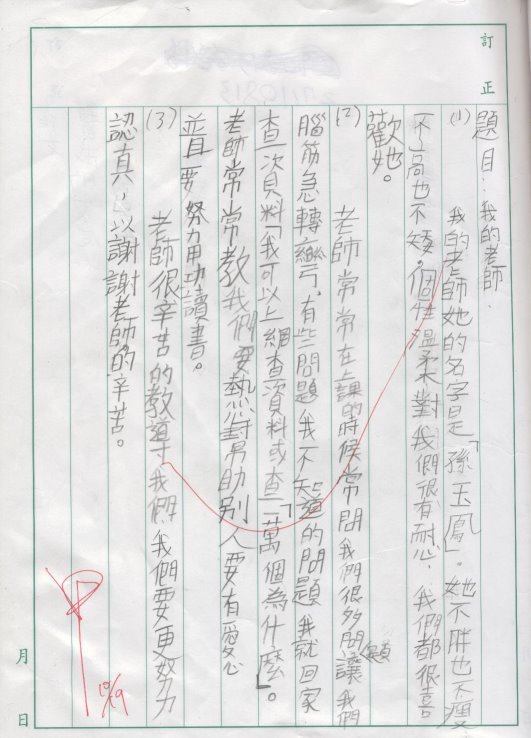 訂正
題目：我的老師
(1)我的老師她的名字是「孫玉鳳」。她不胖也不瘦
不高也不矮。個性溫柔對我們很有耐心，我們都很喜
歡她。
(2)老師常常在上課的時候常問我們很多問題讓我們
腦筋急轉彎，有些問題我不知道的問題我就回家
查一次資料「我可以上網查資料或查「一萬個為什麼」。
老師常常教我們要熱心幫助別人要有愛心
並且要努力用功讀書。
(3)老師很辛苦的教導我們，我們要更努力
認真，以謝謝老師的辛苦。
10/9
月日